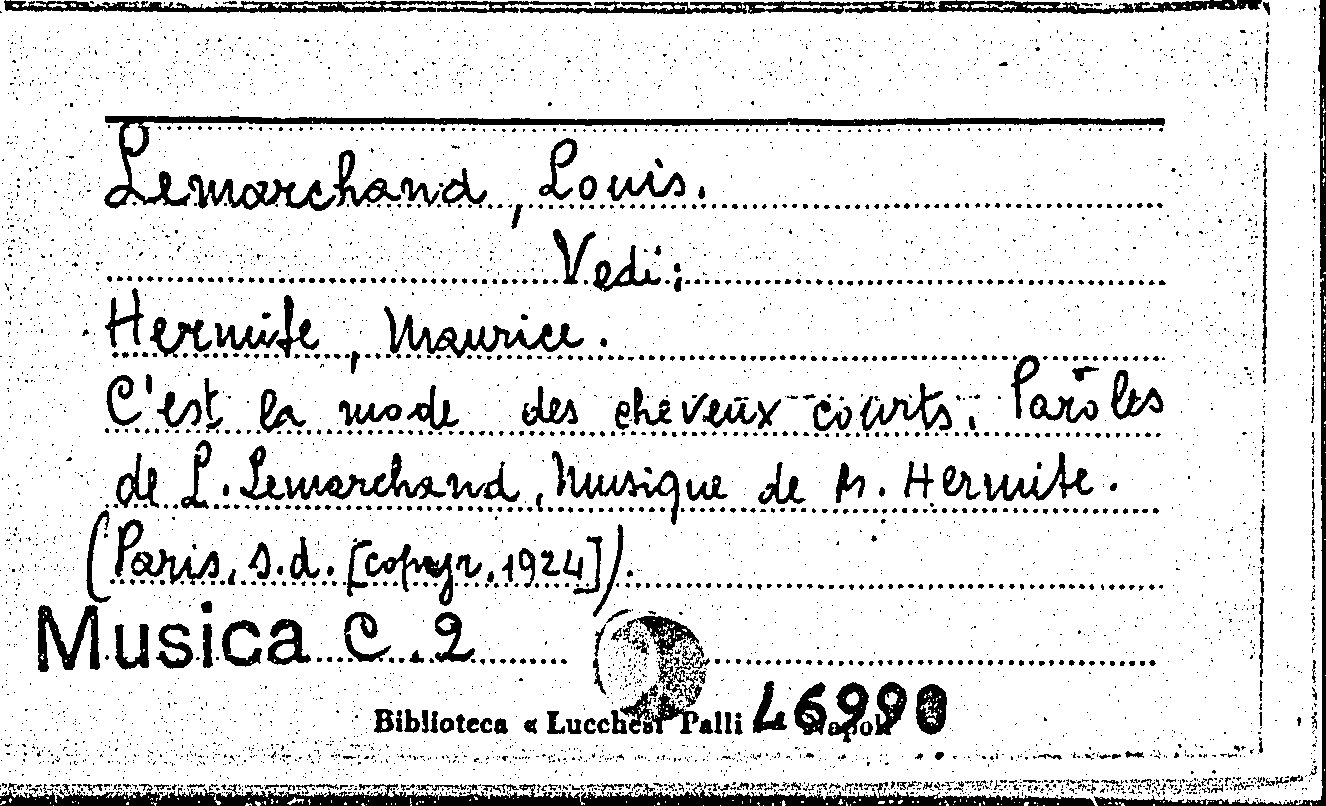 Lemarchand, Louis.
Vedi:
Hermite, Maurice.
C'est la mode des cheveux courts. Paroles
de L. Lemarchand, Musique de M. Hermite.
(Paris, s.d. [copyr. 1924]).
Musica C. 2
Biblioteca « Lucchesi Palli » Napoli
46990